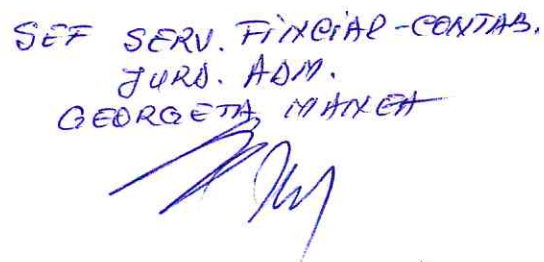 SEF SERV. FINCIAL-CONTAB.
JURD. ADM.
GEORGETA MANEA